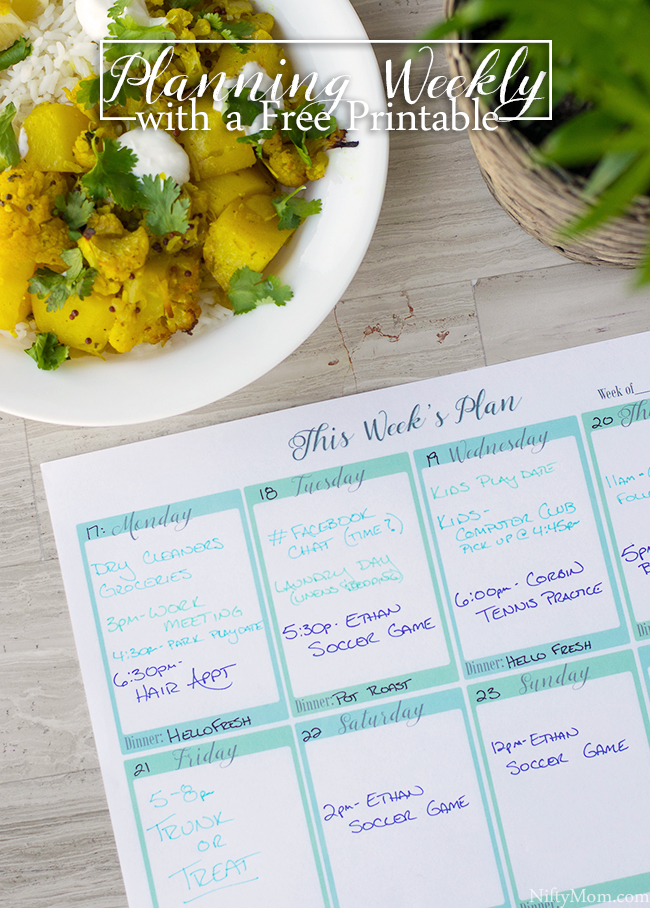 Planning Weekly
with a Free Printable
This Week's Plan
Week of
17: Monday
DRY CLEANERS
GROCERIES
3PM- WORK
MEETING
4:30P- PARK PLAYDATE
6:30PM-
HAIR APPT
Dinner: HELLOFRESH
18 Tuesday
# FACEBOOK
CHAT (TIME?)
LAUNDRY DAY
(LINENS & BEDDING)
5:30P- ETHAN
SOCCER GAME
Dinner: POT ROAST
19 Wednesday
KIDS PLAYDATE
KIDS-
COMPUTER CLUB
PICK UP @ 4:45PM
6:00PM- CORBIN
TENNIS PRACTICE
Dinner: HELLO FRESH
20 Th
11AM-
FOLL
5PM
Dinner
21 Friday
5-8PM
TRUNK
OR
TREAT
22 Saturday
2PM- ETHAN
SOCCER GAME
23 Sunday
12PM- ETHAN
SOCCER GAME
NiftyMom.com